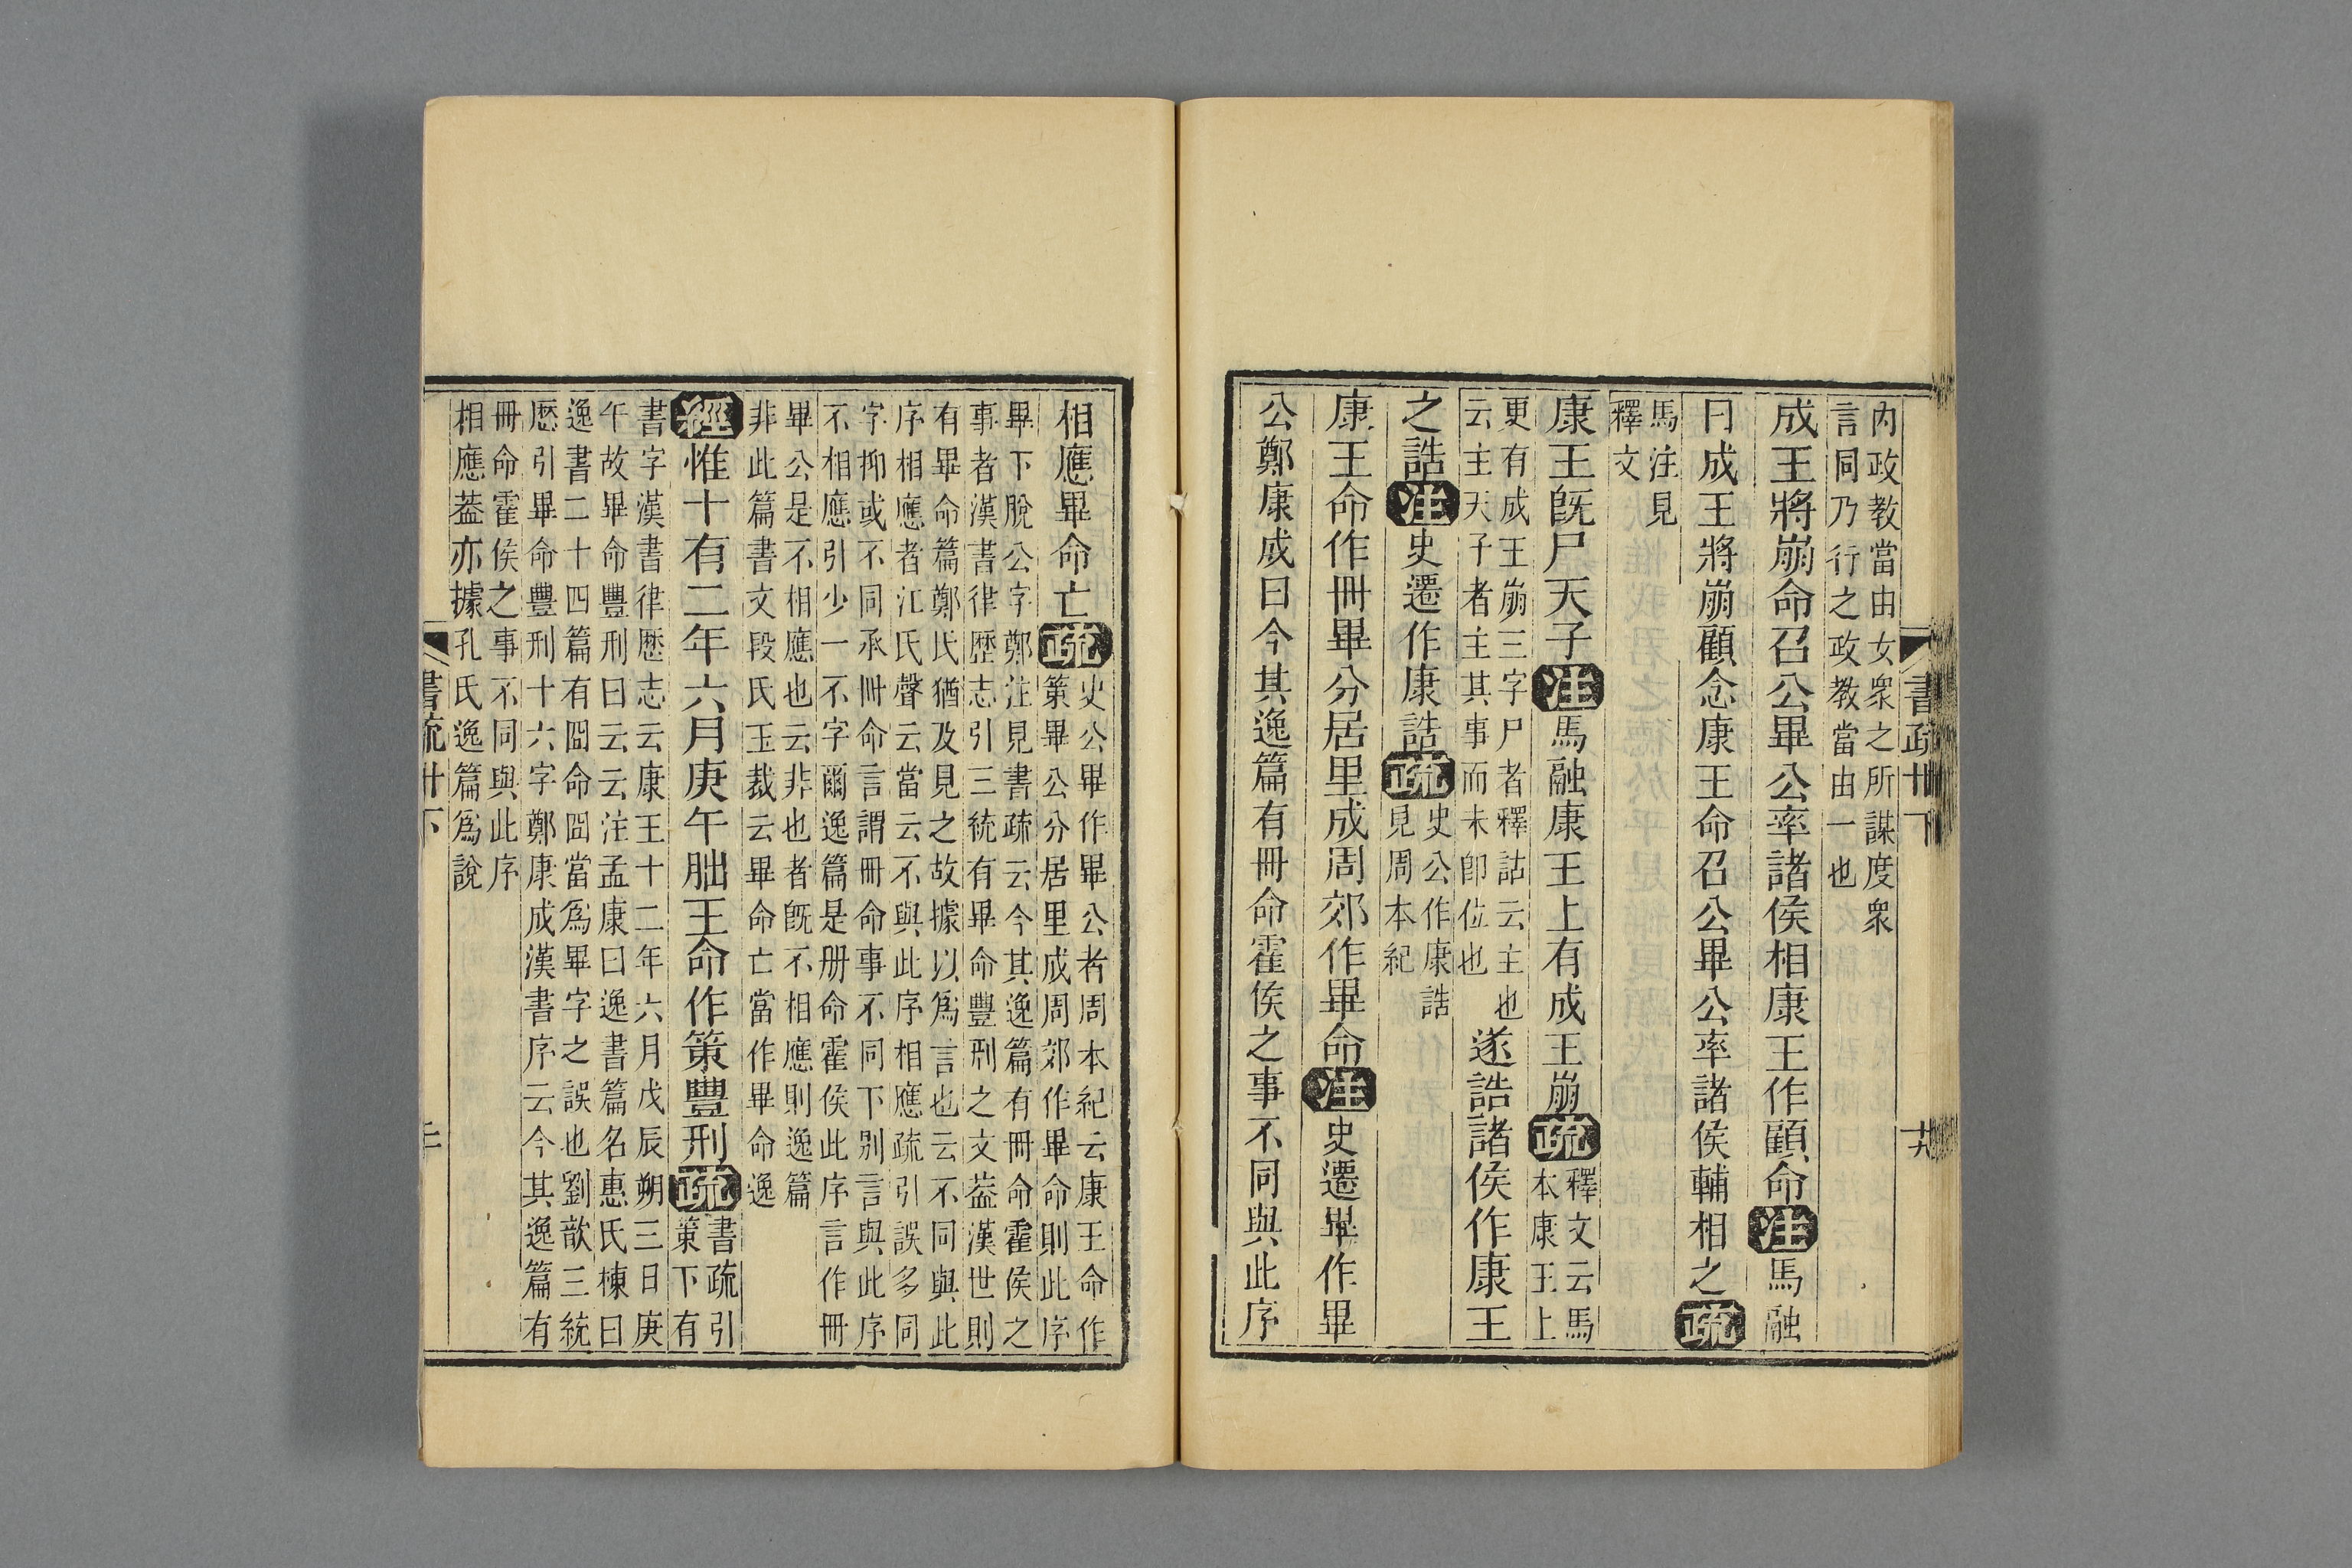 書疏卅下
十九
內政教當由女衆之所謀度衆
言同乃行之政教當由一也
成王將崩命召公畢公率諸侯相康王作顧命注馬融
曰成王將崩顧念康王命召公畢公率諸侯輔相之疏
馬注見
釋文
康王旣尸天子注馬融康王上有成王崩疏
釋文云馬
本康王上
更有成王崩三字尸者釋詁云主也
云主天子者主其事而未卽位也
遂誥諸侯作康王
之誥注史遷作康誥疏
史公作康誥
見周本紀
康王命作冊畢分居里成周郊作畢命注史遷畢作畢
公鄭康成曰今其逸篇有冊命霍侯之事不同與此序
相應畢命亡疏
史公畢作畢公者周本紀云康王命作
策畢公分居里成周郊作畢命則此序
畢下脫公字鄭注見書疏云今其逸篇有冊命霍侯之
事者漢書律歷志引三統有畢命豐刑之文葢漢世則
有畢命篇鄭氏猶及見之故據以爲言也云不同與此
序相應者江氏聲云當云不與此序相應疏引誤多同
字抑或不同承冊命言謂冊命事不同下別言與此序
不相應引少一不字爾逸篇是册命霍侯此序言作冊
畢公是不相應也云非也者旣不相應則逸篇
非此篇書文段氏玉裁云畢命亡當作畢命逸
經惟十有二年六月庚午朏王命作策豐刑疏
書疏引
策下有
書字漢書律歷志云康王十二年六月戊辰朔三日庚
午故畢命豐刑曰云云注孟康曰逸書篇名惠氏棟曰
逸書二十四篇有冏命冏當爲畢字之誤也劉歆三統
歷引畢命豐刑十六字鄭康成漢書序云今其逸篇有
冊命霍侯之事不同與此序
相應葢亦據孔氏逸篇爲說
書疏卅下
二十